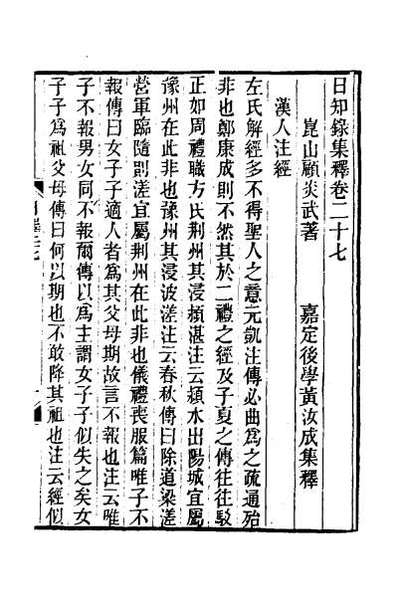 日知錄集釋卷二十七
崑山顧炎武著 嘉定後學黃汝成集釋
漢人注經
左氏解經多不得聖人之意元凱注傳必曲為之疏通殆
非也鄭康成則不然其於二禮之經及子夏之傳往往駁
正如周禮職方氏荊州其浸潁湛注云潁水出陽城宜屬
豫州在此非也豫州其浸波溠注云春秋傳曰除道梁溠
營軍臨隨則溠宜屬荊州在此非也儀禮喪服篇唯子不
報傳曰女子子適人者為其父母期故言不報也注云唯
子不報男女同不報爾傳以為主謂女子子似失之矣女
子子為祖父母傳曰何以期也不敢降其祖也注云經似